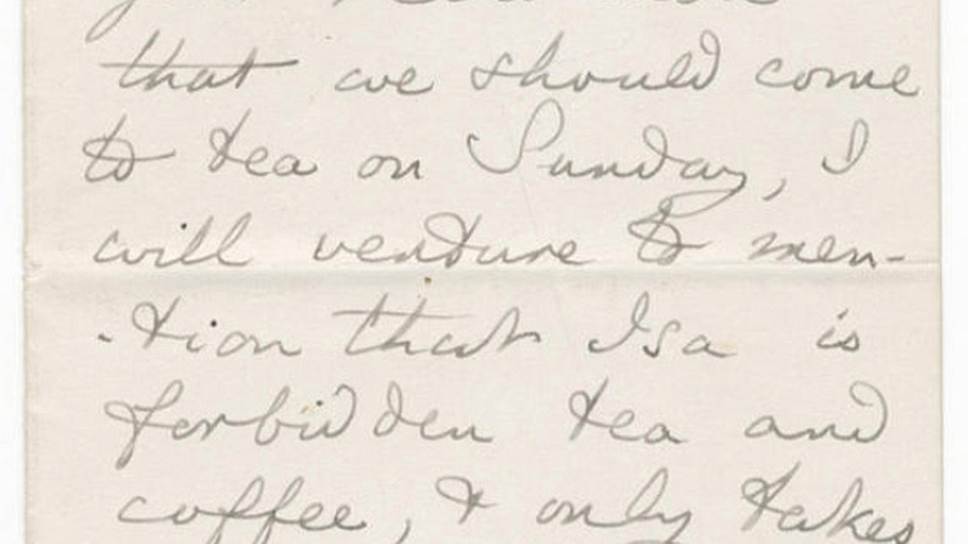 that we should come
to tea on Sunday, I
will venture to men-
-tion that Isa is
forbidden tea and
coffee, & only takes